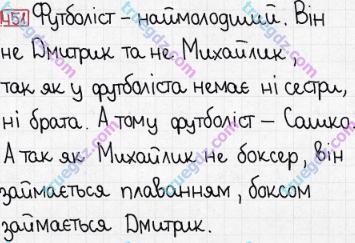 451 Футболіст – наймолодший. Він
не Дмитрик та не Михайлик,
так як у футболіста немає ні сестри,
ні брата. А тому футболіст – Сашко.
А так як Михайлик не боксер, він
займається плаванням, боксом
займається Дмитрик.